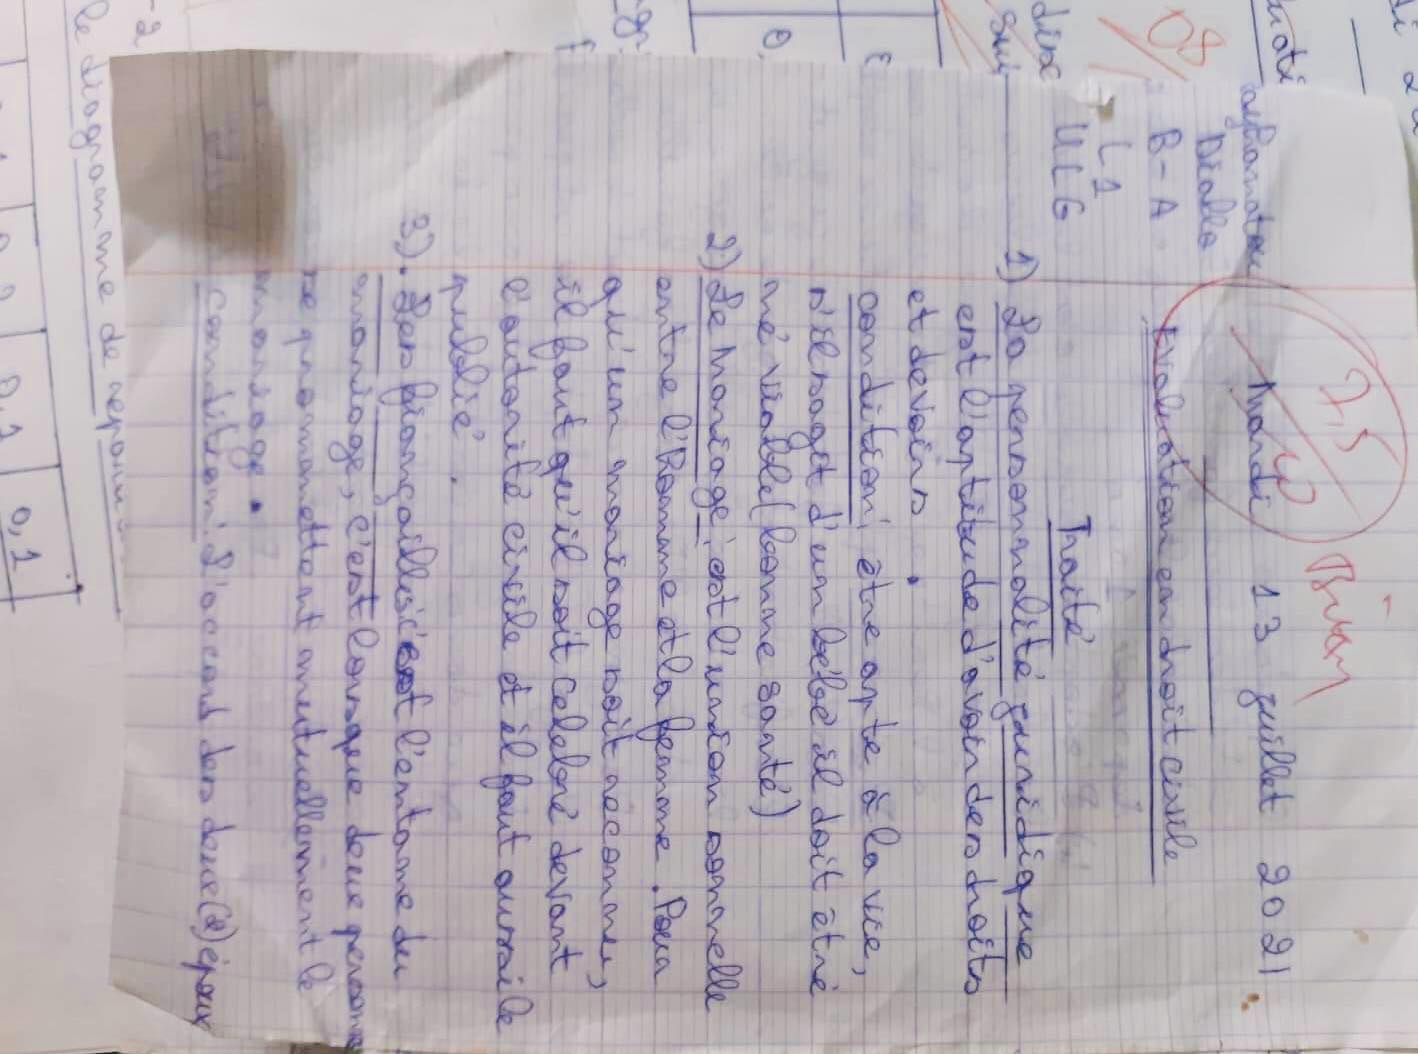 Mardi 13 juillet 2021
Diallo
B-A
L1
ULG
7,5
10
Bien
Evaluation en droit civile
Traité
1) La personnalité juridique
est l'aptitude d'avoir des droits
et devoirs.
condition: être apte à la vie,
s'il sagit d'un bébé il doit être
né viable (bonne santé)
2) Le Mariage: est l'union sonnelle
entre l'homme et la femme. Pour
qu'un mariage soit reconnu,
il faut qu'il soit celebré devant
l'autorité civile et il faut aussi le
publié.
3). Les fiançailles: c'est l'entame du
mariage, c'est lorsque deux personne
se promettent mutuellement le
mariage.
Condition: L'accord des deux (2) époux
08
le diagramme de
0,1
0,1